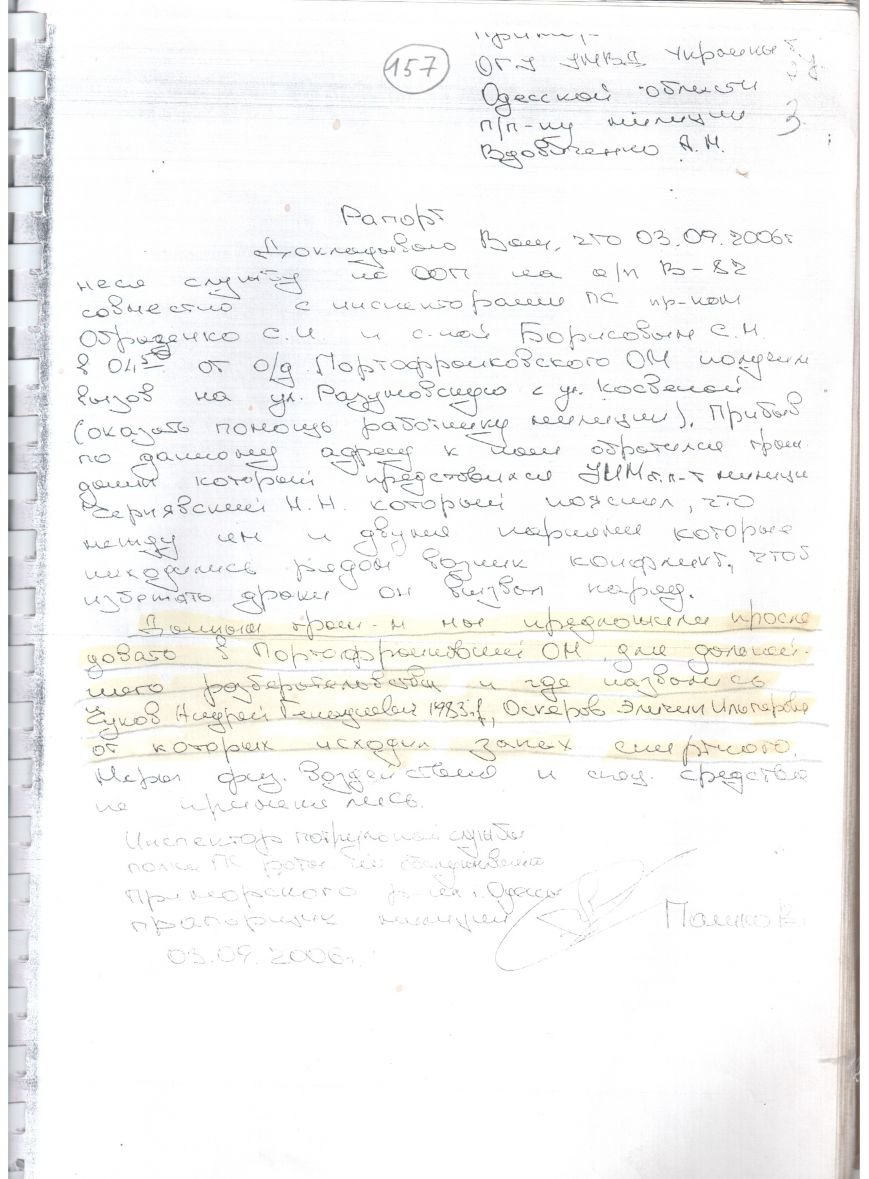 157
ОГУ УМВД Украины в
Одесской области
п/п-ку милиции
3
Вдовиченко А.Н.
Рапорт
Докладываю Вам, что 03.09.2006г
несл службу по ООП на а/п В-82
совместно с инспекторами ПС пр-ком
С.И. и с-ной Борисовым С.Н.
в 01.50 от о/д Портофранковского ОМ получен
вызов на ул. Разумовскую с ул. Косвеной
(оказать помощь работнику милиции). Прибыв
по данному адресу к нам обратился граж
данин который представился УИМ милиции
Чернявский Н.Н. который пояснил, что
между им и двумя парнями которые
находились рядом возник конфликт, чтоб
избежать драки он вызвал наряд.
Данным граж-м мы предложили просле
довать в Портофранковский ОМ для дальней-
шего разберательства и где назвались
Чуков Андрей 1983г, Оскеров Элчин
от которых исходил запах спиртного.
Меры физ. Воздействия и спец. средства
не применялись.
Инспектор патрульной службы
полка ПС роты
Приморского р-на г. Одессы
прапорщик милиции
03.09.2006г.